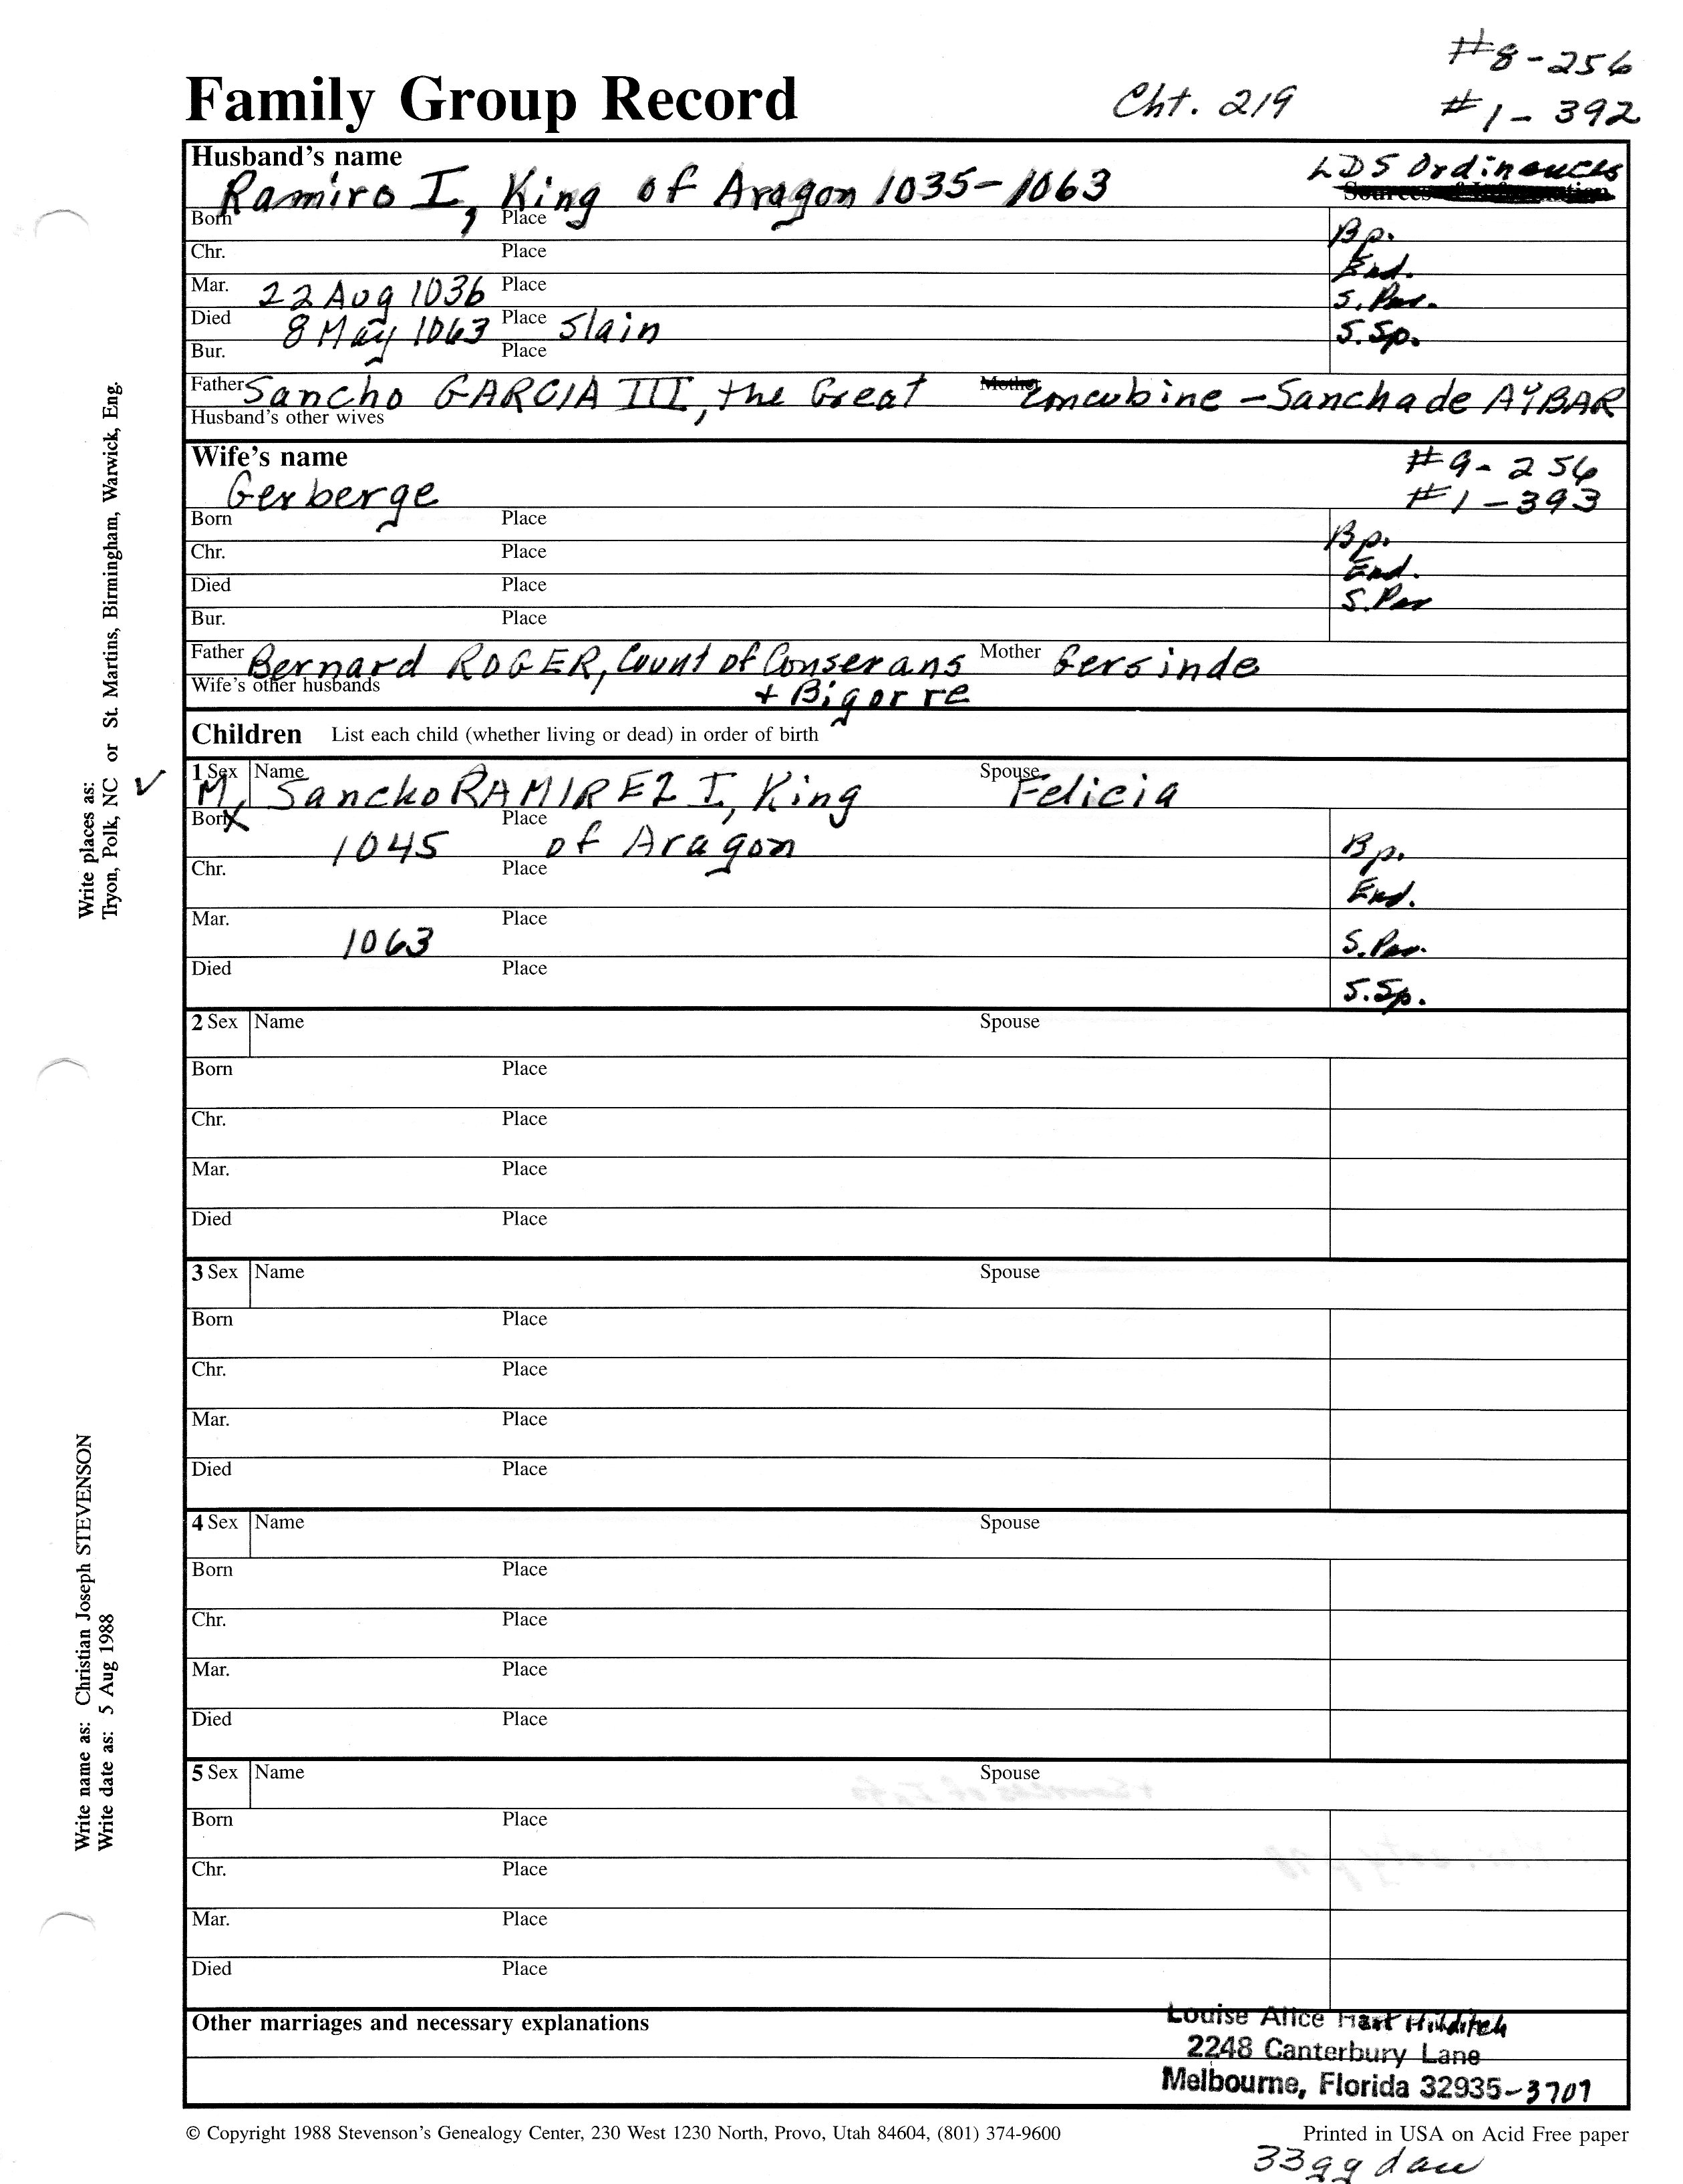 #8-256
Family Group Record Cht. 219 #1-392
Husband's name LDS Ordinances
Ramiro I, King of Aragon 1035-1063
Born Place Bp.
Chr. Place End.
Mar. 22 Aug 1036 Place S. Par.
Died 8 May 1063 Place Slain S.Sp.
Bur. Place
Father Sancho GARCIA III, the Great Mother Concubine - Sancha de AYBAR
Husband's other wives
Wife's name #9-256
Gerberge #1-393
Born Place Bp.
Chr. Place End.
Died Place S.Par
Bur. Place
Father Bernard ROGER, Count of Conserans Mother Gersinde
Wife's other husbands + Bigorre
Children List each child (whether living or dead) in order of birth
1 Sex Name Spouse
✓ M, Sancho RAMIREZ I, King Felicia
Born X Place
1045 of Aragon Bp.
Chr. Place
End.
Mar. Place
1063 S.Par.
Died Place
S.Sp.
2 Sex Name Spouse
Born Place
Chr. Place
Mar. Place
Died Place
3 Sex Name Spouse
Born Place
Chr. Place
Mar. Place
Died Place
4 Sex Name Spouse
Born Place
Chr. Place
Mar. Place
Died Place
5 Sex Name Spouse
Born Place
Chr. Place
Mar. Place
Died Place
Other marriages and necessary explanations
Louise Alice Hart Hilditch
2248 Canterbury Lane
Melbourne, Florida 32935-3701
© Copyright 1988 Stevenson's Genealogy Center, 230 West 1230 North, Provo, Utah 84604, (801) 374-9600 Printed in USA on Acid Free paper
33gg dau
Write places as:
Tryon, Polk, NC or St. Martins, Birmingham, Warwick, Eng.
Write name as: Christian Joseph STEVENSON
Write date as: 5 Aug 1988